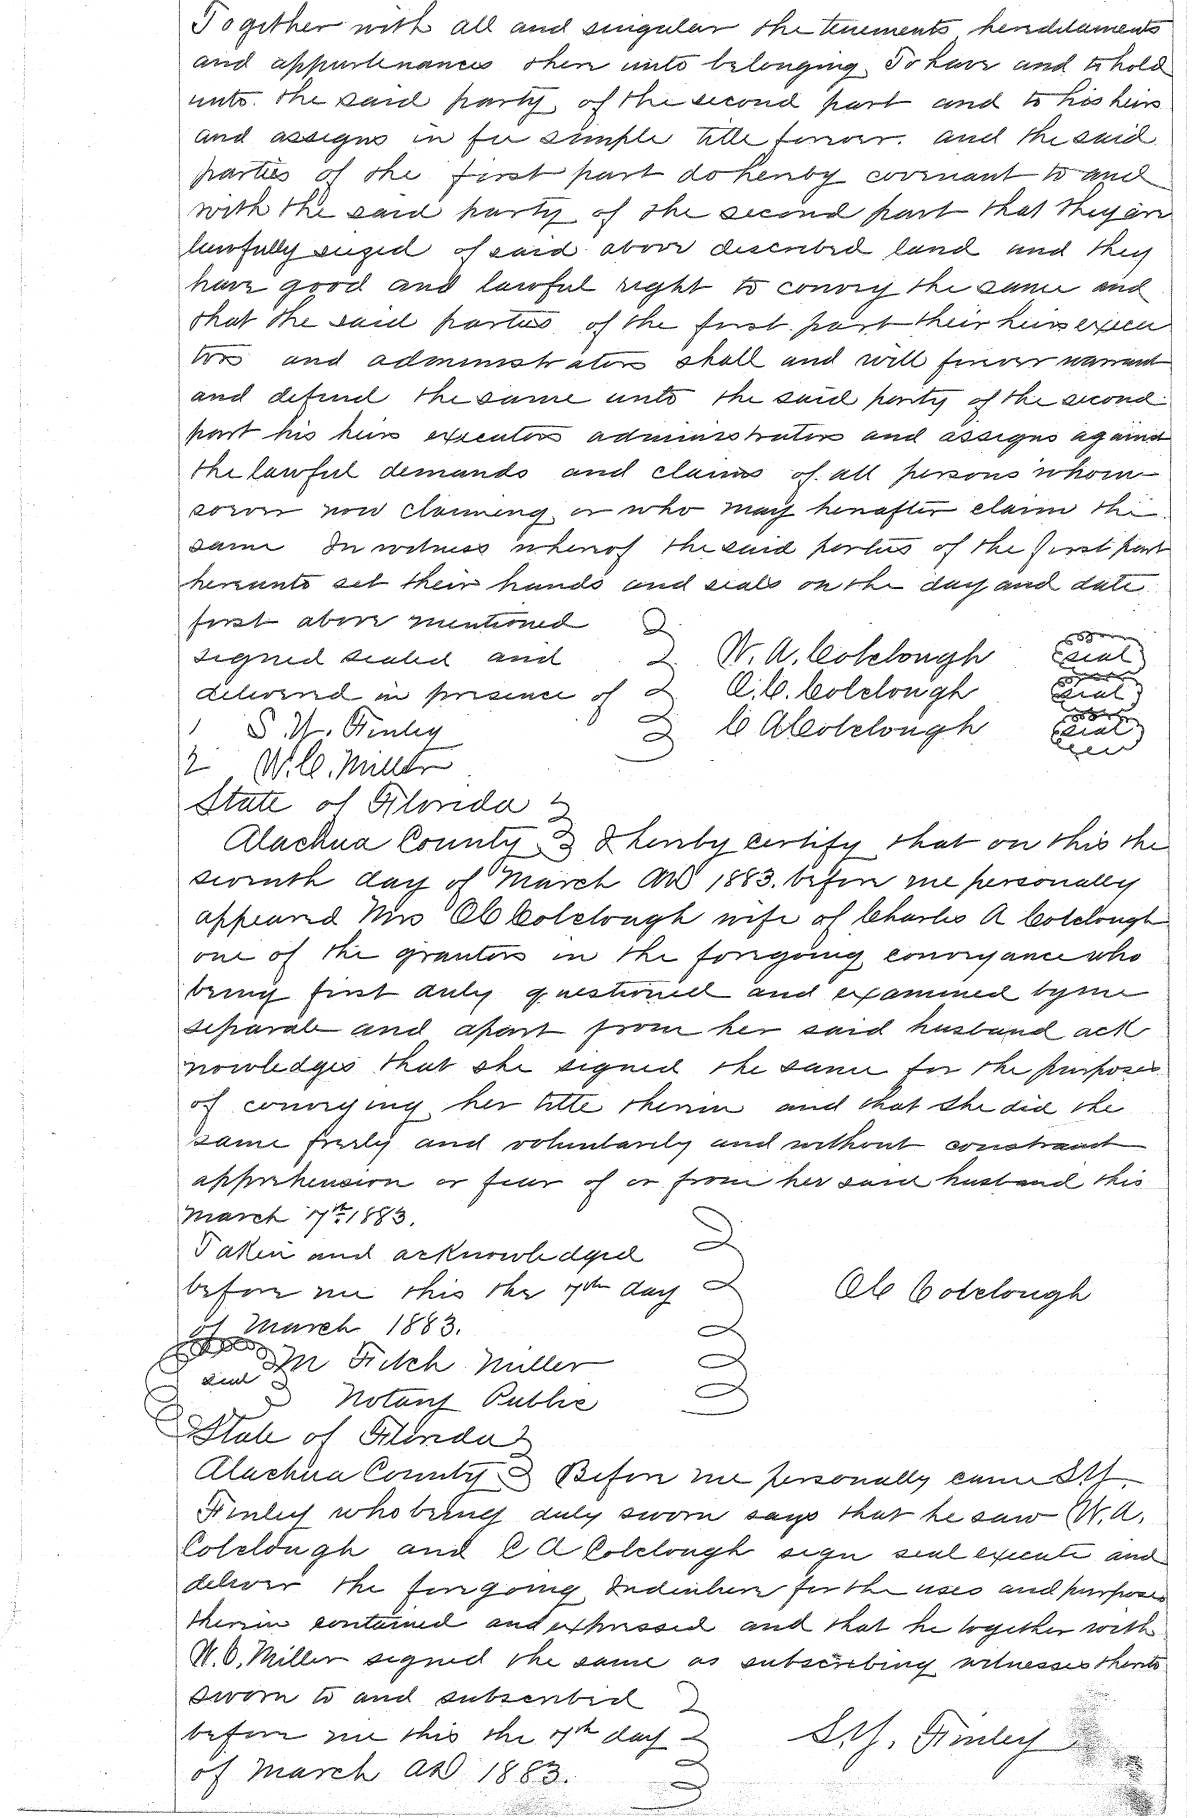 Together with all and singular the tenements hereditaments
and appurtenances there unto belonging To have and to hold
unto the said party of the second part and to his heirs
and assigns in fee simple title forever. and the said
parties of the first part do hereby covenant to and
with the said party of the second part that they are
lawfully siezed of said above described land and they
have good and lawful right to convey the same and
that the said parties of the first part their heirs execu
tors and administrators shall and will forever warrant
and defend the same unto the said party of the second
part his heirs executors administrators and assigns against
the lawful demands and claims of all persons whom
soever now claiming or who may hereafter claim the
same In witness whereof the said parties of the first part
hereunto set their hands and seals on the day and date
first above mentioned
signed sealed and W. A. Colclough seal
delivered in presence of O. C. Colclough seal
1 S. Y. Finley C A Colclough seal
2 W. C. Miller
State of Florida
Alachua County I hereby certify that on this the
seventh day of March AD 1883. before me personally
appeared Mrs O C Colclough wife of Charles A Colclough
one of the grantors in the foregoing conveyance who
being first duly questioned and examined by me
separate and apart from her said husband ack
nowledges that she signed the same for the purposes
of conveying her title therein and that she did the
same freely and voluntarily and without constraint
apprehension or fear of or from her said husband this
March 7th 1883.
Taken and acknowledged
before me this the 7th day O C Colclough
of March 1883.
seal M Fitch Miller
Notary Public
State of Florida
Alachua County Before me personally came S. Y.
Finley who being duly sworn says that he saw W. A.
Colclough and C A Colclough sign seal execute and
deliver the foregoing Indenture for the uses and purposes
therein contained and expressed and that he together with
W. C. Miller signed the same as subscribing witnesses thereto
sworn to and subscribed
before me this the 7th day S. Y. Finley
of March AD 1883.